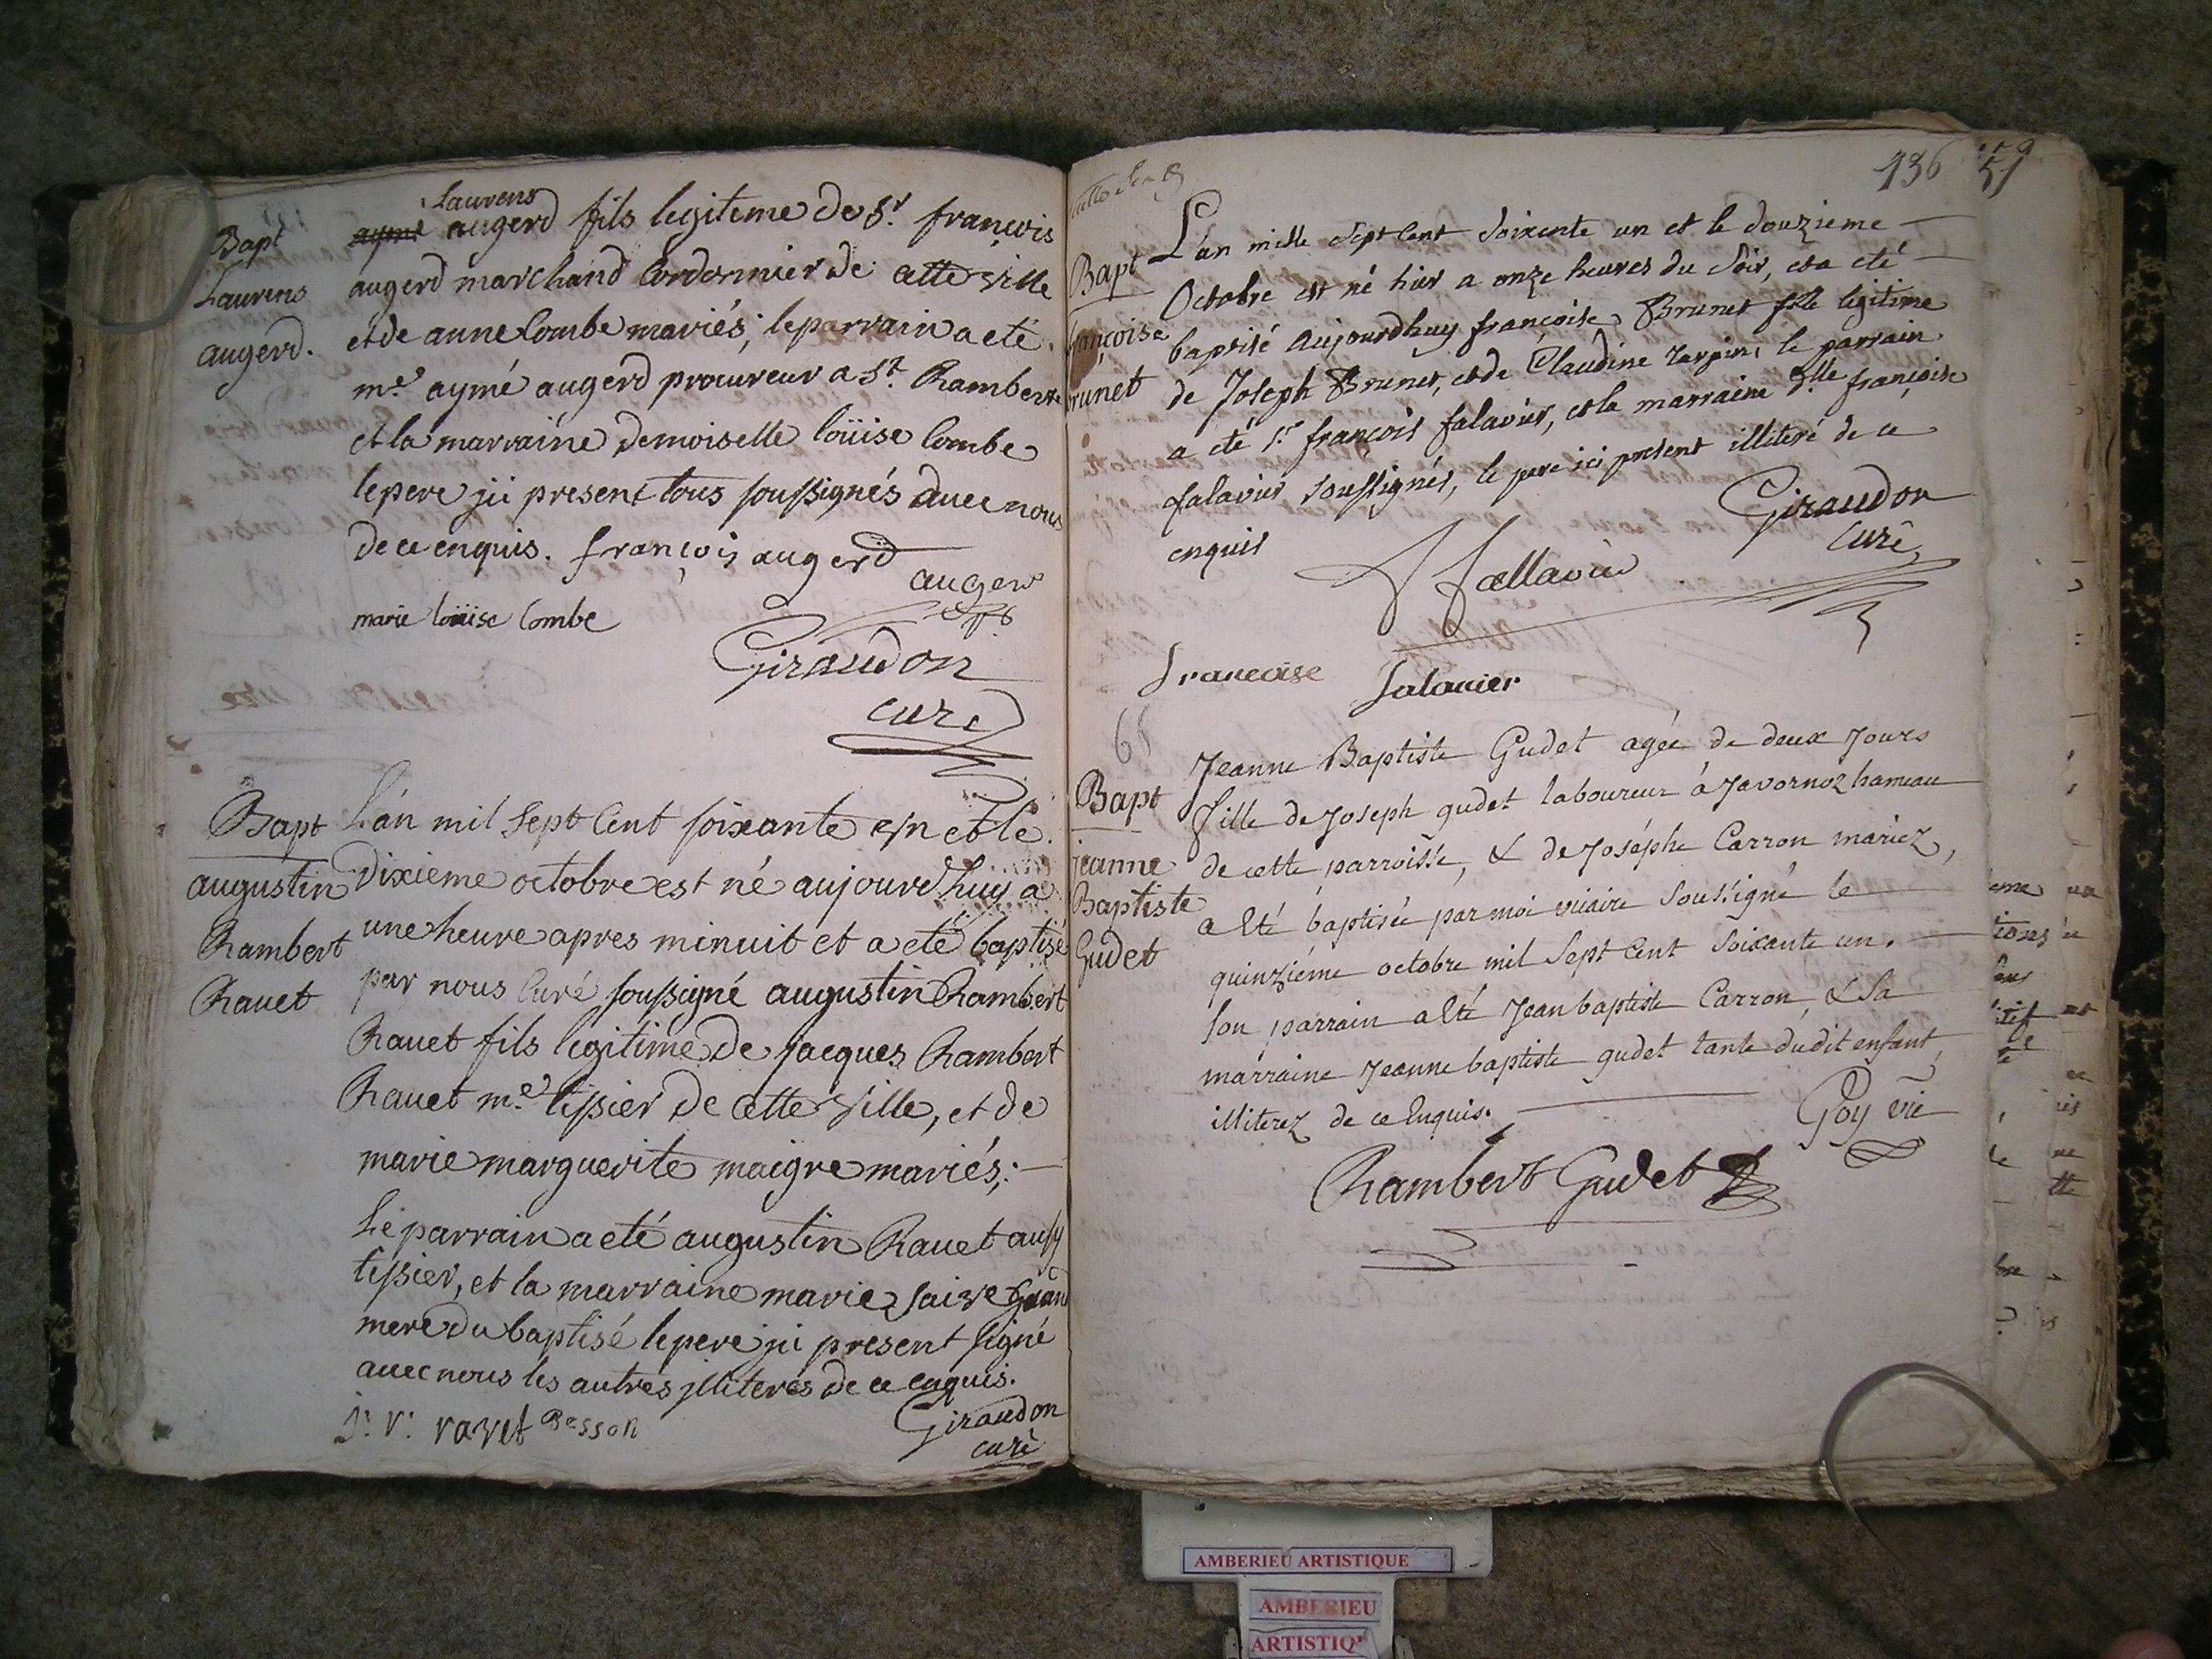 Bapt
Laurens
augerd.
Laurens
aymé augerd fils legiteme de Sr. françois
augerd marchand Cordonnier de cette ville
et de anne Combe mariés; le parrain a eté
me. aymé augerd procureur a St. Rambert
et la marraine demoiselle loüise Combe
le pere jci present tous soussignés avec nous
de ce enquis. françois augerd
auger
marie loüise Combe
Giraudon
curé
Bapt
augustin
Rambert
Ravet
L'an mil sept Cent soixante un et le
Dixieme octobre est né aujourd'huy a
une heure apres minuit et a eté baptisé
par nous Curé soussigné augustin Rambert
Ravet fils legitime de jacques Rambert
Ravet me. tissier de cette ville, et de
marie marguerite maigre mariés;
Le parrain a eté augustin Ravet aussy
tissier, et la marraine marie saive grand
mere du baptisé le pere jci present signé
avec nous les autres jlliterés de ce enquis.
j: r: ravet Besson
Giraudon
curé
136 59
Bapt
françoise
brunet
L'an mille Sept Cent Soixente un et le douzieme
Octobre est né hier a onze heures du Soir, et a eté
baptisé Aujourdhuy françoise Brunet fille legitime
de Joseph Brunet, et de Claudine tarpin, le parrain
a eté Sr. françois falavier, et la marraine dlle. françoise
falavier soussignés, le pere ici present illiteré de ce
enquis
Giraudon
Curé
fallavier
francoise falavier
68
Bapt
jeanne
Baptiste
Gudet
Jeanne Baptiste Gudet agée de deux Jours
fille de Joseph gudet laboureur à Javornoz hameau
de cette parroisse, & de Joséphe Carron mariez,
a Eté baptisée par moi vicaire Soussigné le
quinziéme octobre mil Sept Cent Soixante un.
Son parrain a Eté Jean baptiste Carron, & Sa
marraine Jeanne baptiste gudet tante dudit enfant,
illiterez de ce Enquis.
Goy vic
Rambert Gudet
AMBERIEU ARTISTIQUE
AMBERIEU
ARTISTIQ